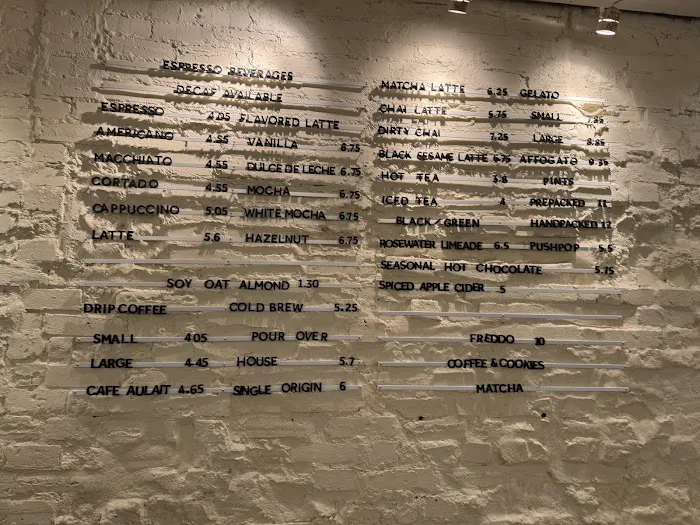 ESPRESSO BEVERAGES
DECAF AVAILABLE
ESPRESSO 4.05 FLAVORED LATTE
AMERICANO 4.55 VANILLA 6.75
MACCHIATO 4.55 DULCE DE LECHE 6.75
CORTADO 4.55 MOCHA 6.75
CAPPUCCINO 5.05 WHITE MOCHA 6.75
LATTE 5.6 HAZELNUT 6.75
SOY OAT ALMOND 1.30
DRIP COFFEE COLD BREW 5.25
SMALL 4.05 POUR OVER
LARGE 4.45 HOUSE 5.7
CAFE AULAIT 4.65 SINGLE ORIGIN 6
MATCHA LATTE 6.25 GELATO
CHAI LATTE 5.75 SMALL 7.85
DIRTY CHAI 7.25 LARGE 8.85
BLACK SESAME LATTE 6.75 AFFOGATO 9.35
HOT TEA 3.8 PINTS
ICED TEA 4 PREPACKED 11
BLACK/GREEN HANDPACKED 12
ROSEWATER LIMEADE 6.5 PUSHPOP 5.5
SEASONAL HOT CHOCOLATE 5.75
SPICED APPLE CIDER 5
FREDDO 10
COFFEE & COOKIES
MATCHA